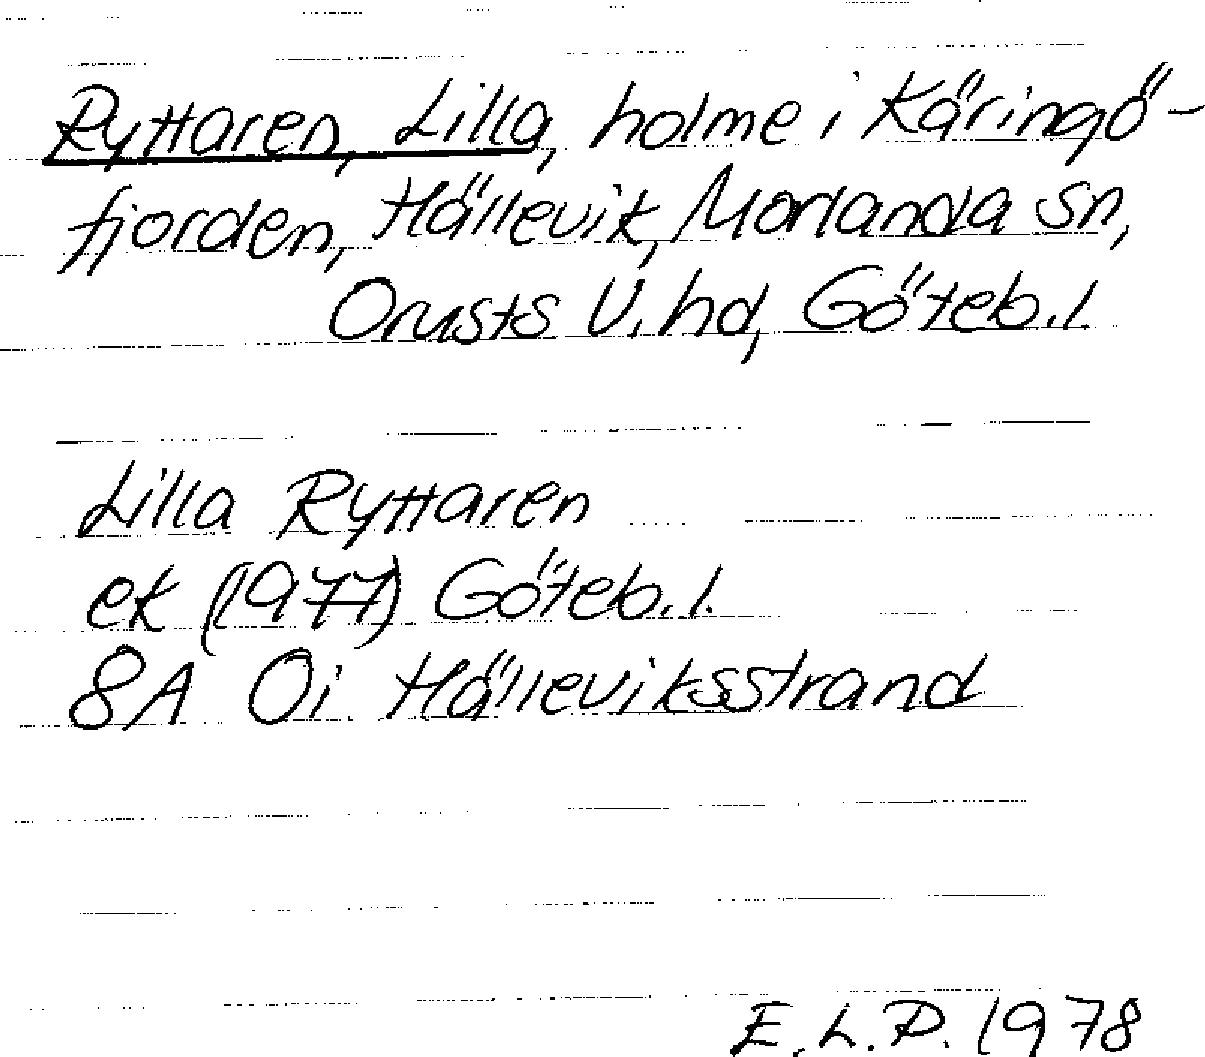 Ryttaren, Lilla, holme i Käringö-
fjorden, Hällevik, Morlanda sn,
Orusts V. hd, Göteb. l.
Lilla Ryttaren
ek (1977) Göteb. l.
8A 0i Hälleviksstrand
E. L. P. 1978